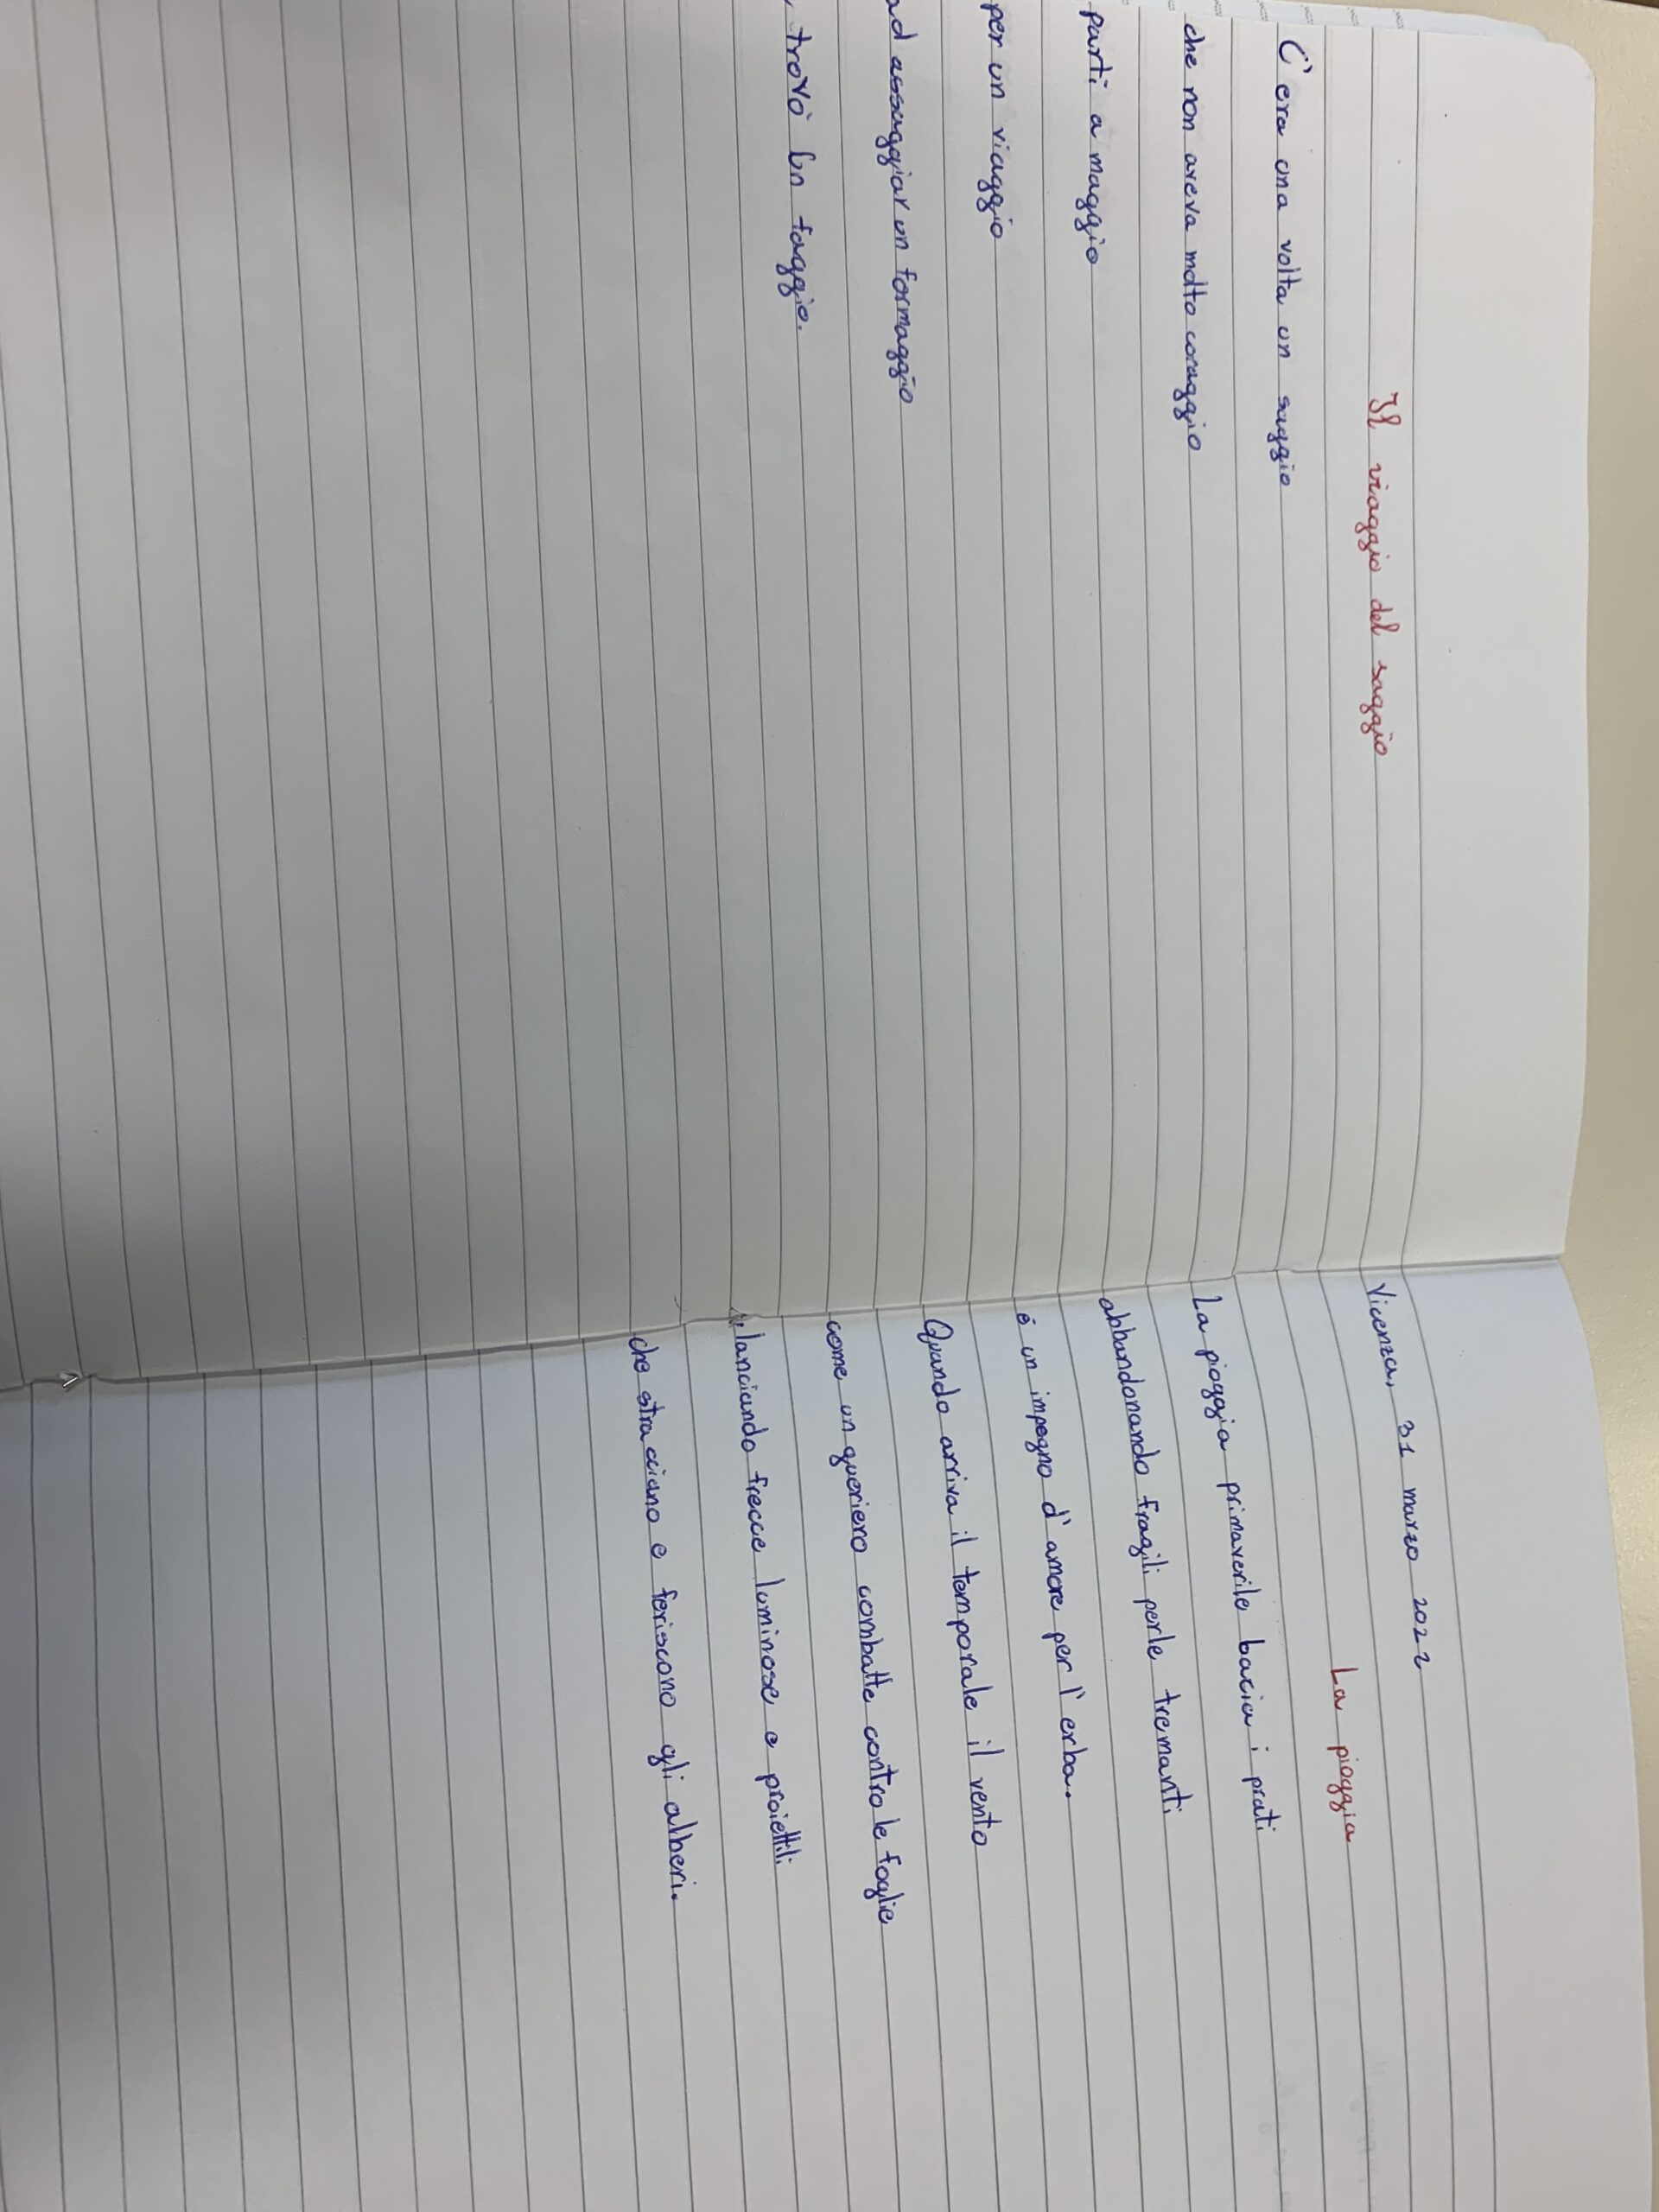 Il viaggio del saggio
C'era una volta un saggio
che non aveva molto coraggio
partì a maggio
per un viaggio
ad assaggiar un formaggio
trovò un faggio.
Vicenza, 31 marzo 2022
La pioggia
La pioggia primaverile bacia i prati
abbandonando fragili perle tremanti
é un impegno d'amore per l'erba.
Quando arriva il temporale il vento
come un gueriero combatte contro le foglie
lanciando frecce luminose e proiettili
che stracciano e feriscono gli alberi.